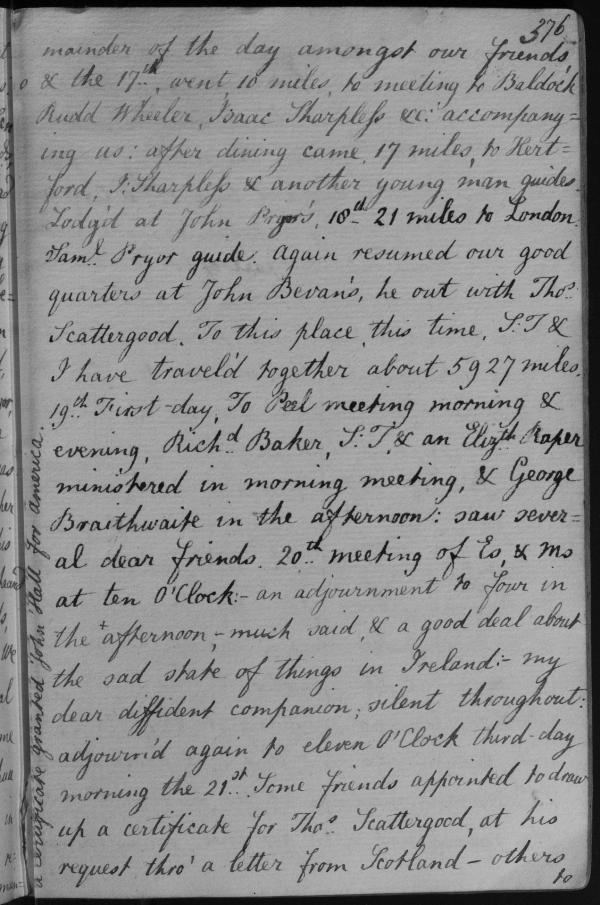 376
mainder of the day amongst our friends,
& the 17th, went 10 miles, to meeting to Baldock
Rudd Wheeler, Isaac Sharpless &c: accompany=
ing us: after dining came, 17 miles, to Hert=
ford, I: Sharpless & another young man guides.
Lodg'd at John Pryor's, 18th 21 miles to London.
Saml. Pryor guide. Again resumed our good
quarters at John Bevan's, he out with Thos.
Scattergood. To this place, this time, S:T &
I have travel'd together about 5927 miles.
19th First-day, To Peel meeting morning &
evening, Richd. Baker, S:T, & an Elizth Raper
ministered in morning meeting, & George
Braithwaite in the afternoon: saw sever=
al dear friends. 20th meeting of Es, & Ms
at ten O'Clock:- an adjournment to four in
the afternoon,- much said, & a good deal about
the sad state of things in Ireland:- my
dear diffident companion, silent throughout:
adjourn'd again to eleven O'Clock third-day
morning the 21st. Some friends appointed to draw
up a certificate for Thos. Scattergood, at his
request thro' a letter from Scotland - others
to
a certificate granted John Hall for america.